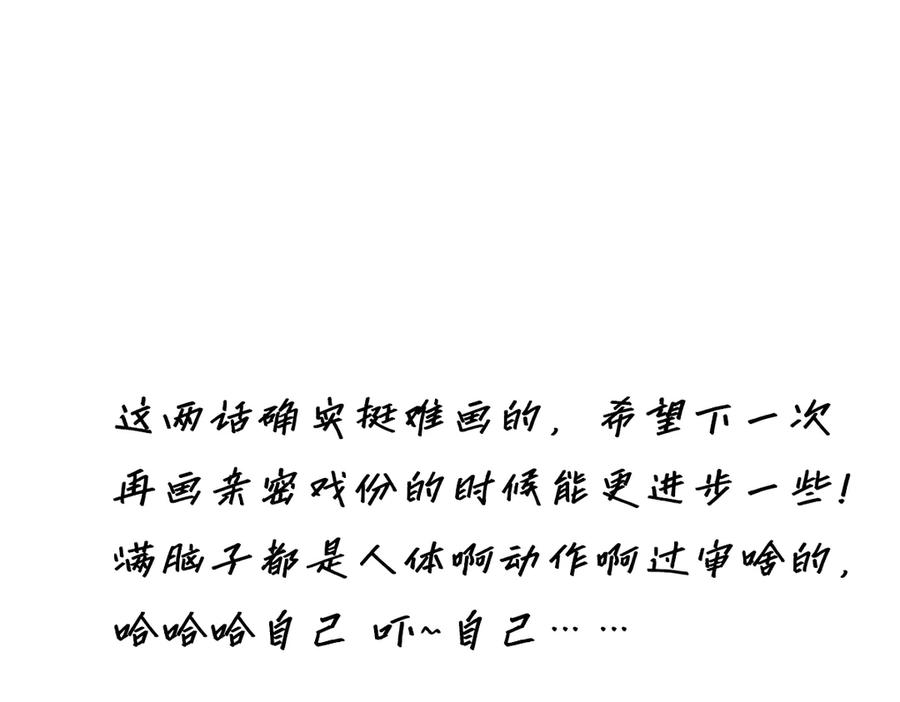 这两话确实挺难画的，希望下一次
再画亲密戏份的时候能更进步一些！
满脑子都是人体啊动作啊过审啥的，
哈哈哈自己 吓~自己……